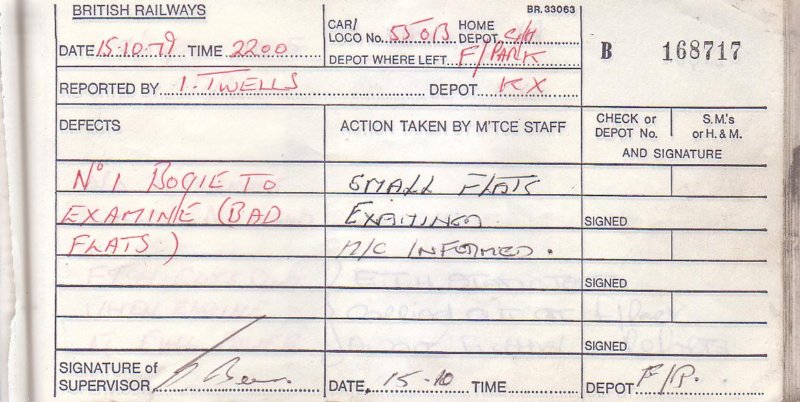 BRITISH RAILWAYS
BR.33063
DATE 15-10-79 TIME 2200
CAR/ LOCO No. 55013 HOME DEPOT
DEPOT WHERE LEFT F/PARK
B 168717
REPORTED BY I. TWELLS DEPOT KX
DEFECTS
ACTION TAKEN BY M'TCE STAFF
CHECK or DEPOT No.
S.M.'s or H. & M.
AND SIGNATURE
No 1 BOGIE TO
EXAMINE (BAD
FLATS)
SMALL FLATS
EXAMINED
M/C INFORMED.
SIGNED
SIGNED
SIGNED
SIGNATURE of SUPERVISOR
DATE 15-10 TIME
DEPOT F/P.